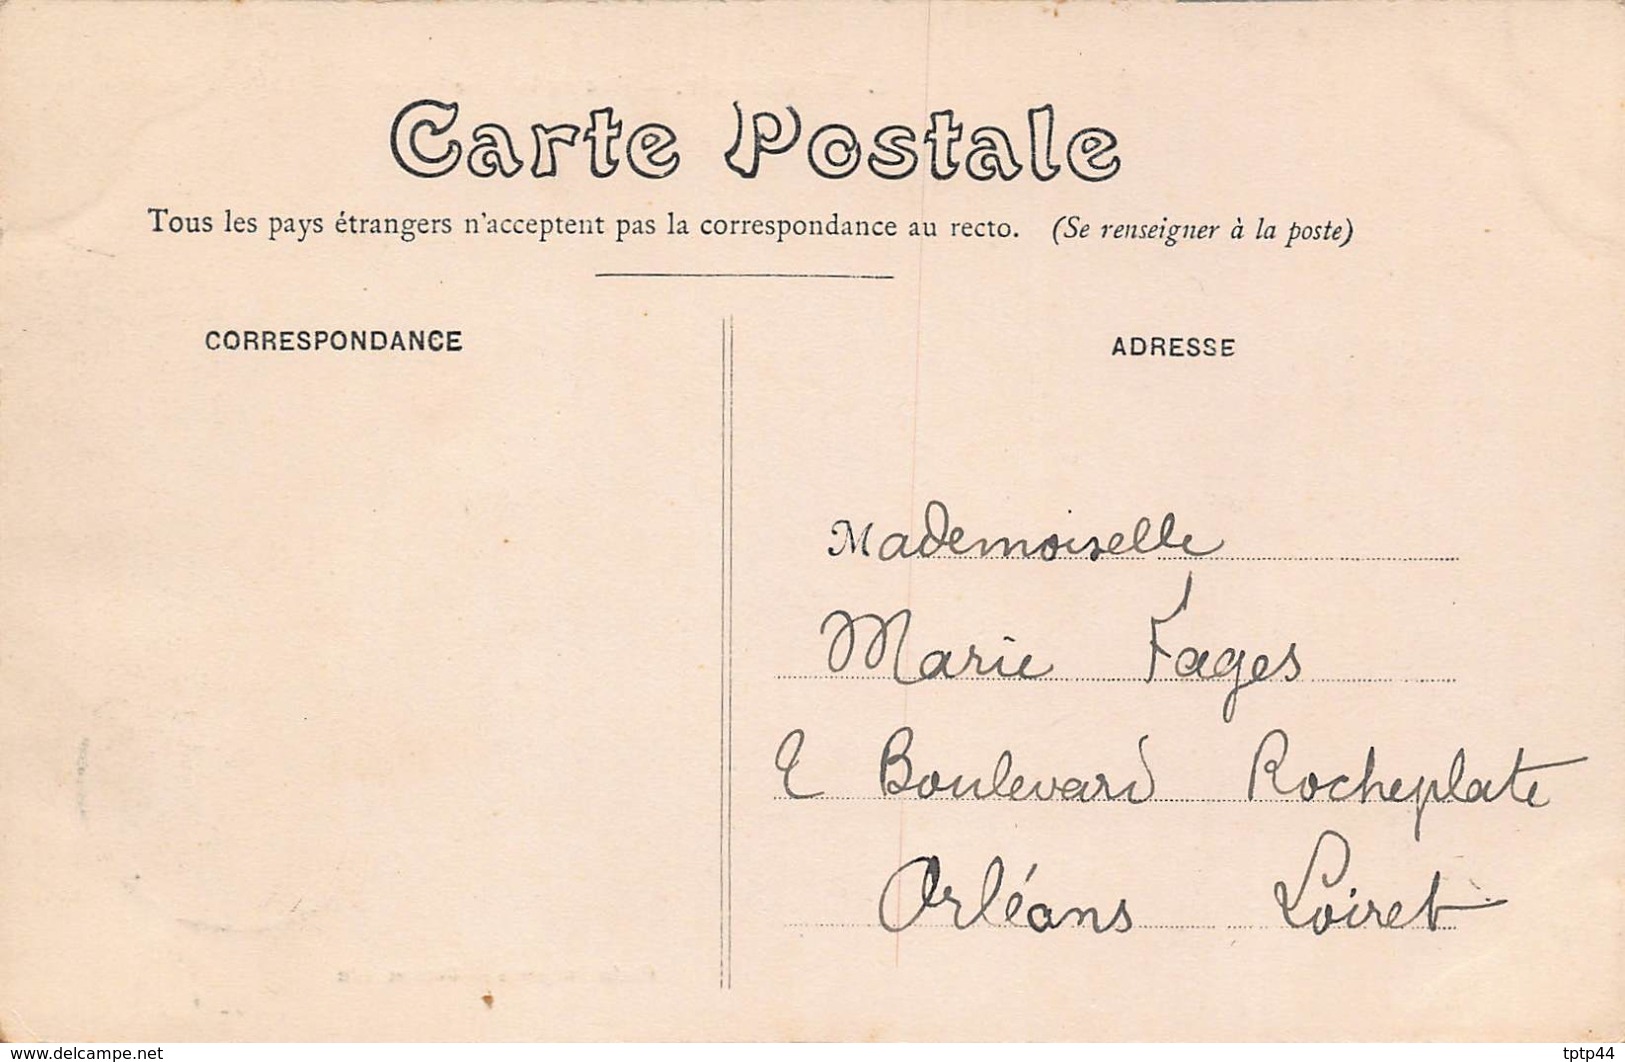 Carte Postale
Tous les pays étrangers n'acceptent pas la correspondance au recto. (Se renseigner à la poste)
CORRESPONDANCE
ADRESSE
Mademoiselle
Marie Fages
Boulevard Rocheplate
Orléans Loiret
www.delcampe.net
tptp44